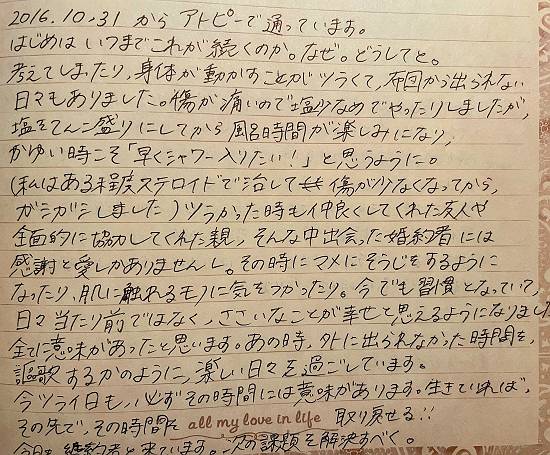 2016.10.31 から アトピーで通っています。
はじめは いつまでこれが続くのか。なぜ。どうしてと。
考えてしまったり、身体が動かすことがツラくて、布団から出られない
日々もありました。傷が痛いので塩少なめでやったりしましたが、
塩をてんこ盛りにしてから風呂時間が楽しみになり、
かゆい時こそ「早くシャワー入りたい!」と思うように。
(私はある程度ステロイドで治して 傷が少なくなってから、
ガシガシしました)ツラかった時も仲良くしてくれた友人や
全面的に協力してくれた親、そんな中出会った婚約者には
感謝と愛しかありません。その時にマメにそうじをするように
なったり、肌に触れるモノに気をつかったり。今でも習慣となっていて、
日々当たり前ではなく、ささいなことが幸せと思えるようになりました
全てに意味があったと思います。あの時、外に出られなかった時間を、
謳歌するかのように、楽しい日々を過ごしています。
今ツライ日も、必ずその時間には意味があります。生きていれば、
その先で、その時間を all my love in life 取り戻せる!!
今日も婚約者と来ています。次の課題を解決すべく。